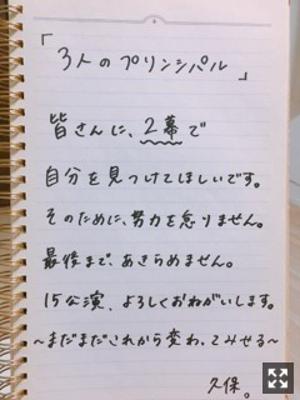 「3人のプリンシパル」
皆さんに、2幕で
自分を見つけてほしいです。
そのために、努力を怠りません。
最後まで、あきらめません。
15公演、よろしくおねがいします。
〜まだまだこれから変わってみせる〜
久保。